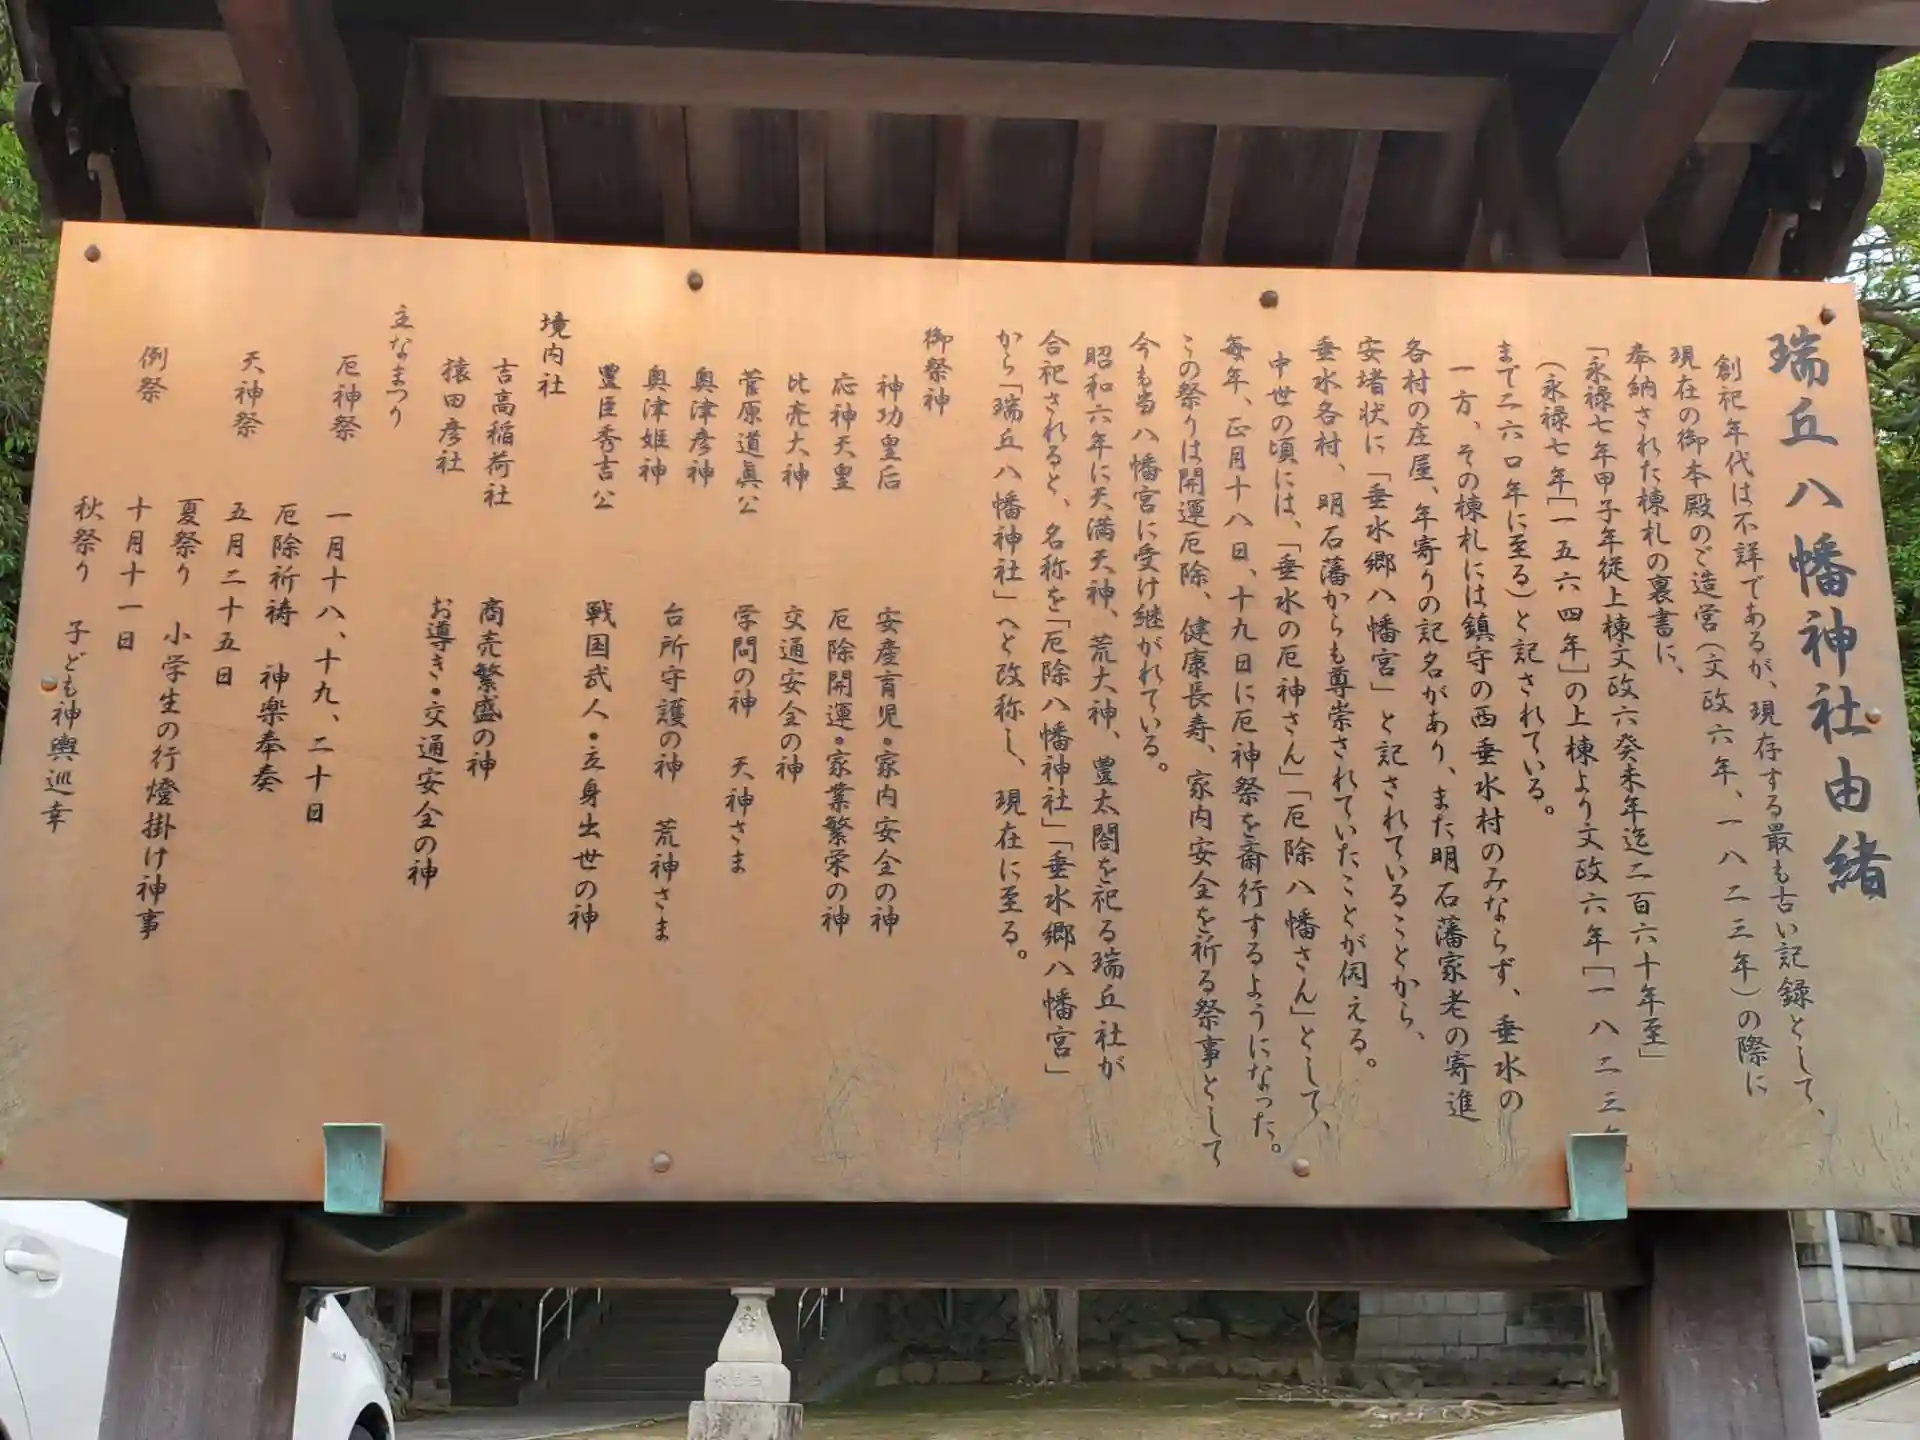 瑞丘八幡神社由緒
創祀年代は不詳であるが、現存する最も古い記録として、
現在の御本殿のご造営(文政六年、一八二三年)の際に
奉納された棟札の裏書に、
「永禄七年甲子年従上棟文政六癸未年迄二百六十年至」
(永禄七年「一五六四年」の上棟より文政六年「一八二三年
まで二六〇年に至る)と記されている。
一方、その棟札には鎮守の西垂水村のみならず、垂水の
各村の庄屋、年寄りの記名があり、また明石藩家老の寄進
安堵状に「垂水郷八幡宮」と記されていることから、
垂水各村、明石藩からも尊崇されていたことが伺える。
中世の頃には、「垂水の厄神さん」「厄除八幡さん」として、
毎年、正月十八日、十九日に厄神祭を斎行するようになった。
この祭りは開運厄除、健康長寿、家内安全を祈る祭事として
今も当八幡宮に受け継がれている。
昭和六年に天満天神、荒大神、豊太閤を祀る瑞丘社が
合祀されると、名称を「厄除八幡神社」「垂水郷八幡宮」
から「瑞丘八幡神社」へと改称し、現在に至る。
御祭神
神功皇后 安産育児・家内安全の神
応神天皇 厄除開運・家業繁栄の神
比売大神 交通安全の神
菅原道眞公 学問の神 天神さま
奥津彦神
奥津姫神 台所守護の神 荒神さま
豊臣秀吉公 戦国武人・立身出世の神
境内社
吉高稲荷社 商売繁盛の神
猿田彦社 お導き・交通安全の神
主なまつり
厄神祭 一月十八、十九、二十日
厄除祈祷 神楽奉奏
天神祭 五月二十五日
夏祭り 小学生の行燈掛け神事
例祭 十月十一日
秋祭り 子ども神輿巡幸